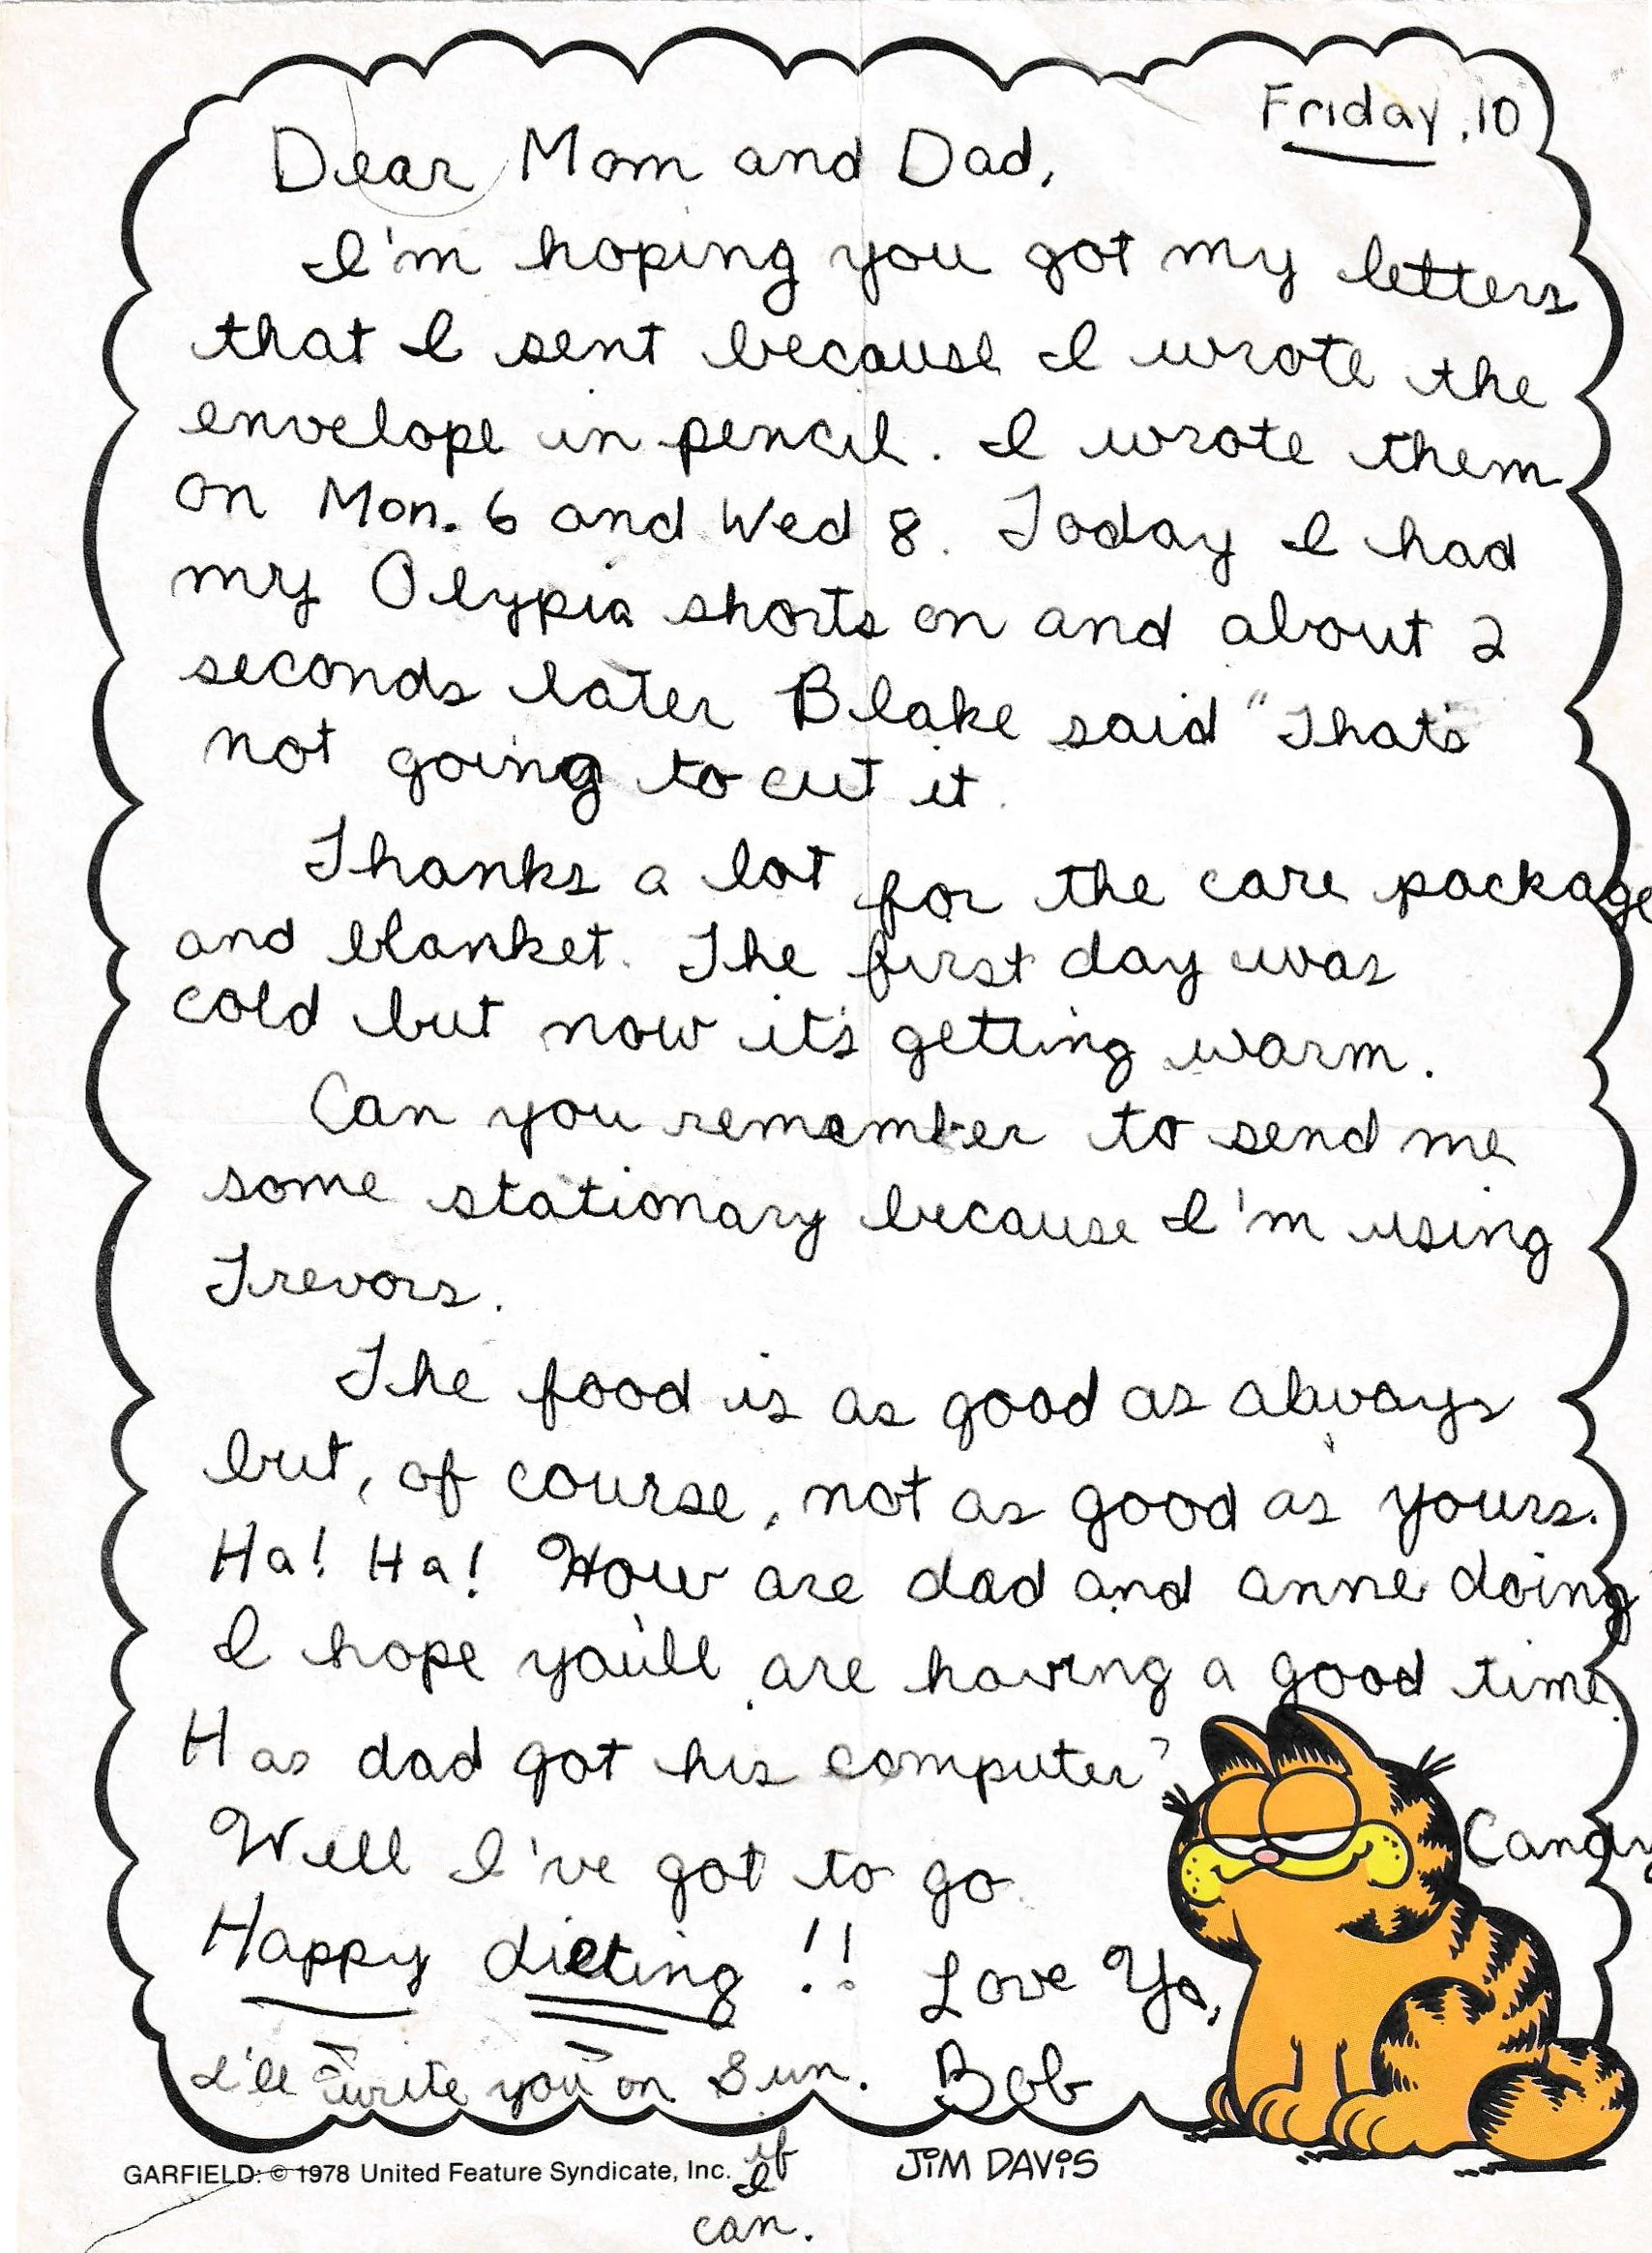 Friday, 10
Dear Mom and Dad,
I'm hoping you got my letters
that I sent because I wrote the
envelope in pencil. I wrote them
on Mon. 6 and Wed 8. Today I had
my Olypia shorts on and about 2
seconds later Blake said "That's
not going to cut it.
Thanks a lot for the care package
and blanket. The first day was
cold but now it's getting warm.
Can you remember to send me
some stationary because I'm using
Trevors.
The food is as good as always
but, of course, not as good as yours.
Ha! Ha! How are dad and anne doing
I hope you'll are having a good time.
Has dad got his computer?
Well I've got to go.
Candy
Happy dieting!! Love Ya,
I'll write you on Sun. Bob
if
I
can.
GARFIELD: © 1978 United Feature Syndicate, Inc.
JIM DAVIS